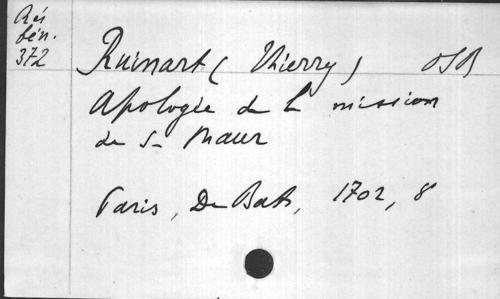 Rés
bén.
372
Ruinart (Thierry) OSB
Apologie de la mission
de S. Maur
Paris, De Bats, 1702, 8°